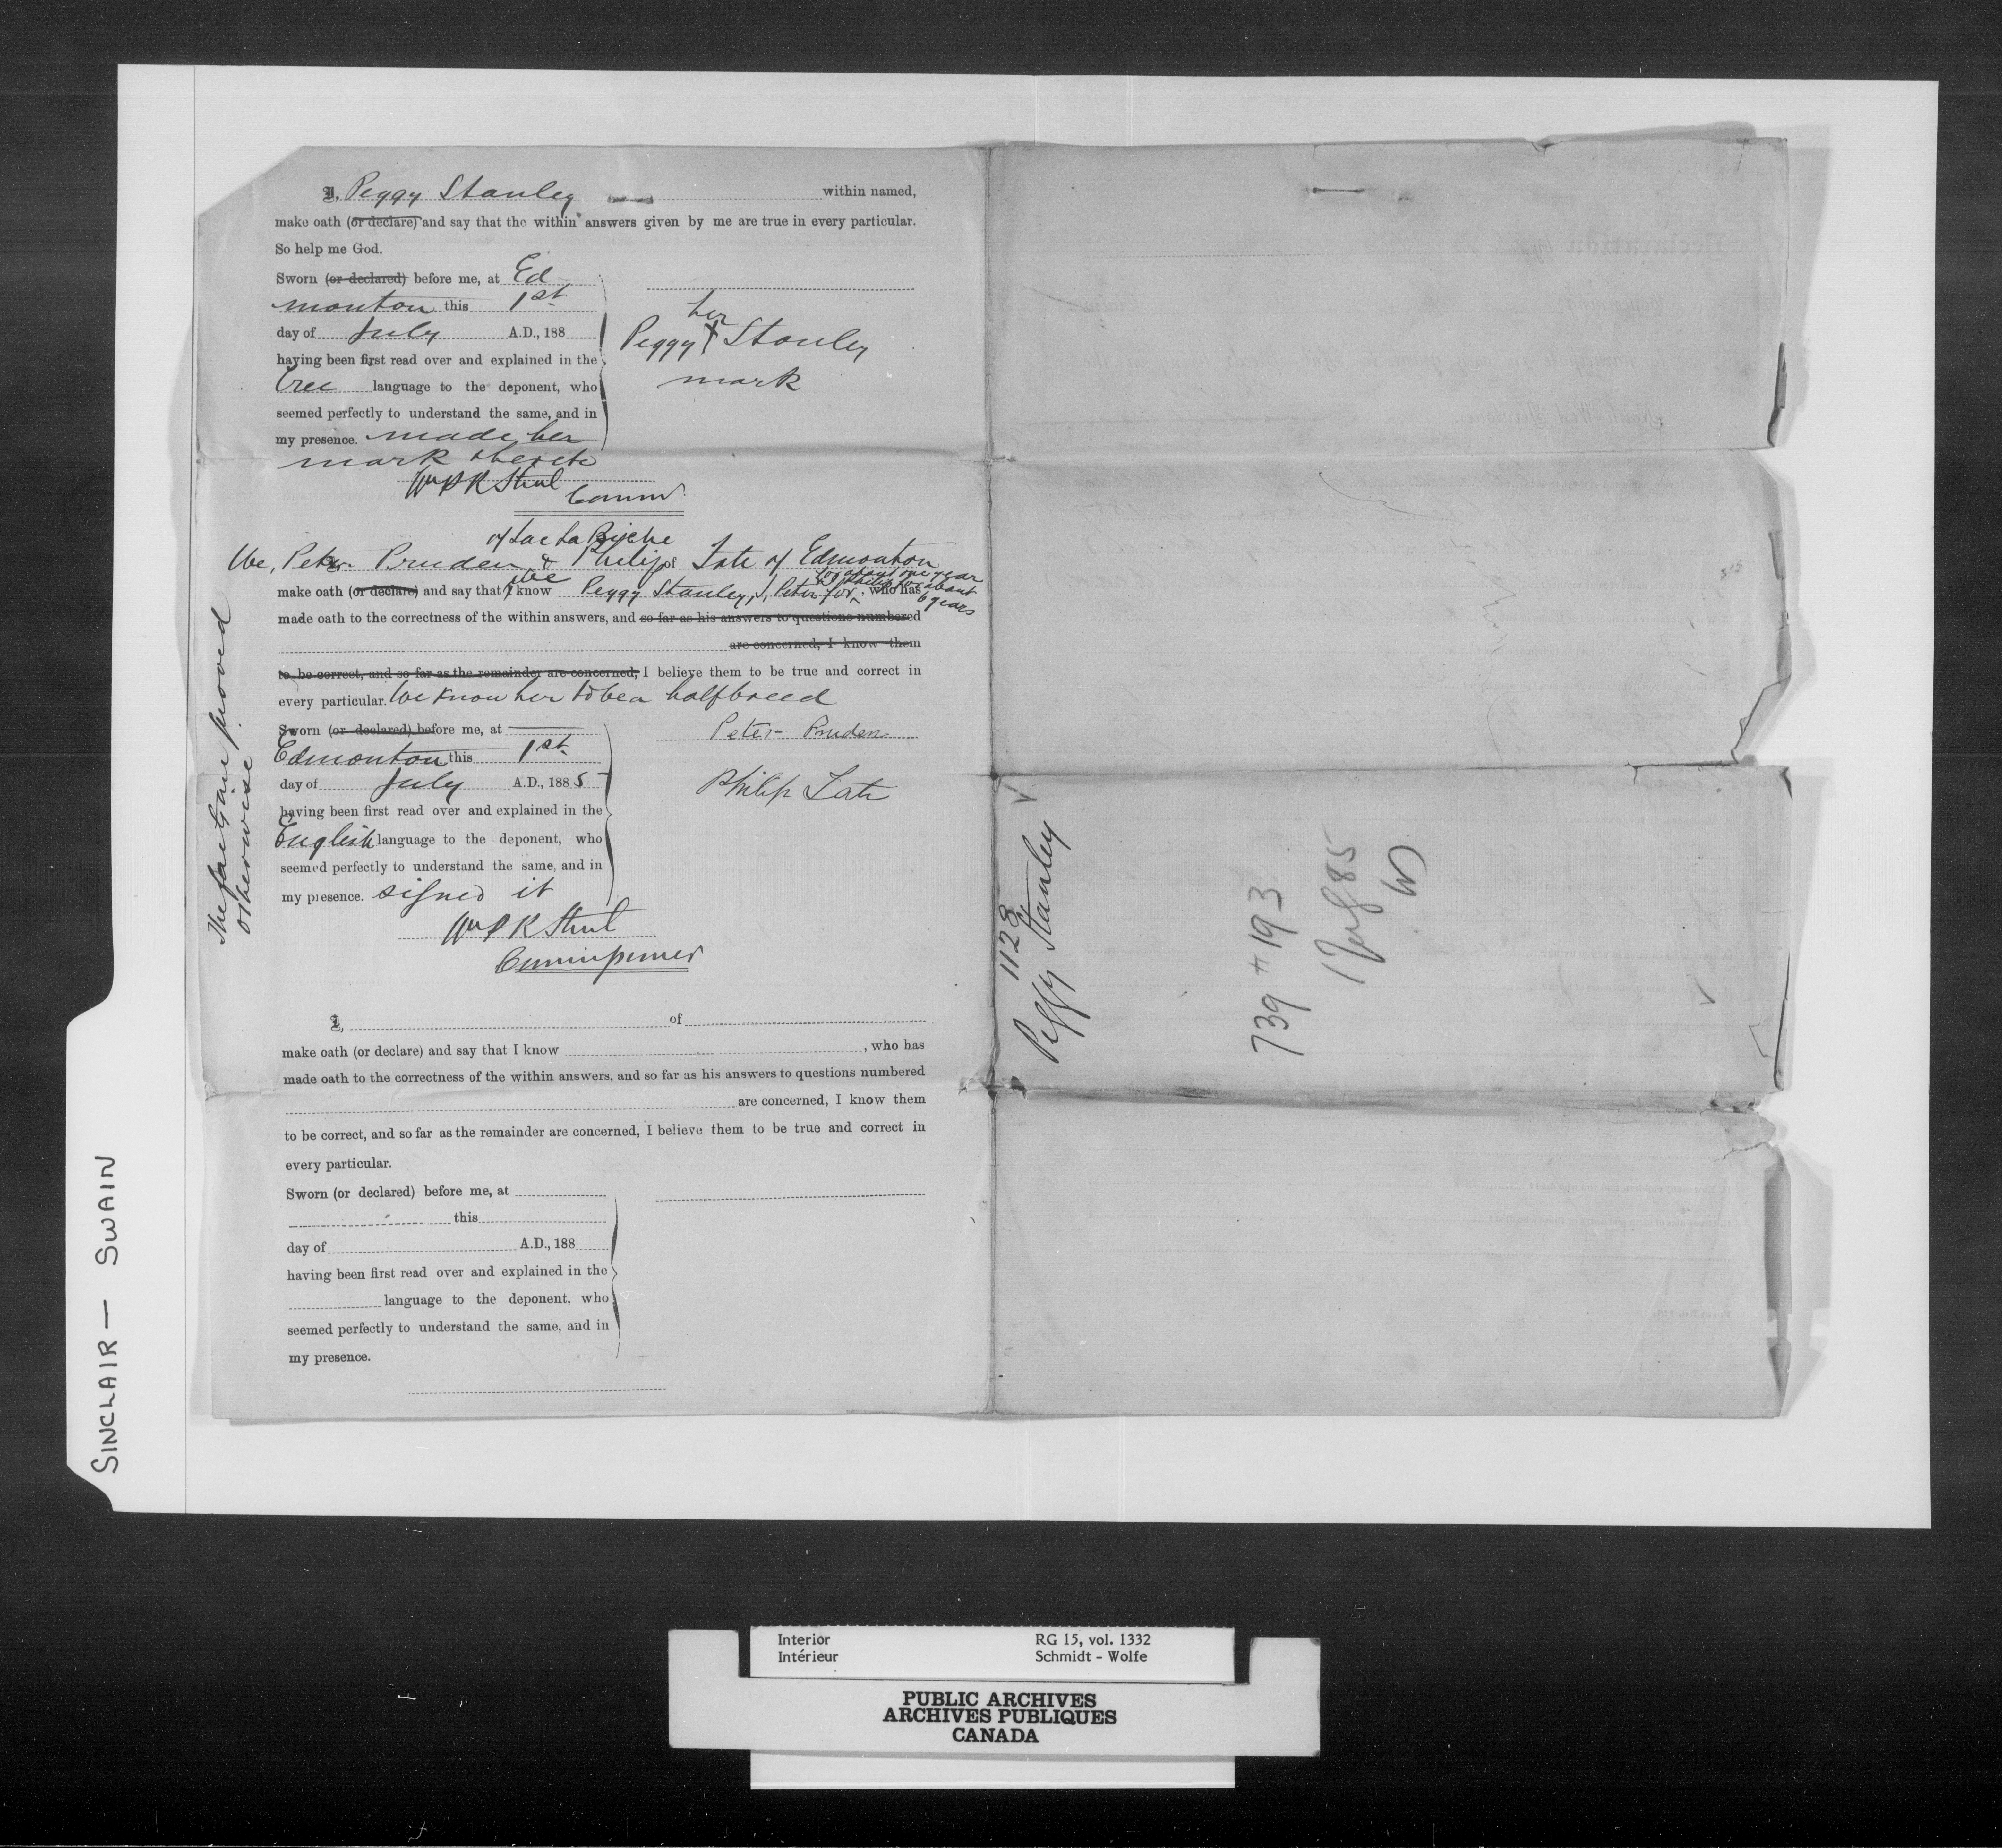 I, Peggy Stanley within named,
make oath (or declare) and say that the within answers given by me are true in every particular.
So help me God.
Sworn (or declared) before me, at Ed
monton this 1st
day of July A.D., 188
having been first read over and explained in the
Cree language to the deponent, who
seemed perfectly to understand the same, and in
my presence. made her
mark thereto
her
Peggy X Stanley
mark
Wm P R Street
Commr
of Lac La Biche
We, Peter Pruden & Philip of Tate of Edmonton
make oath (or declare) and say that I we know Peggy Stanley, I, Peter for about one year & Philip for about 6 years, who has
made oath to the correctness of the within answers, and so far as his answers to questions numbered
are concerned, I know them
to be correct, and so far as the remainder are concerned, I believe them to be true and correct in
every particular. We know her to be a halfbreed
Sworn (or declared) before me, at
Edmonton this 1st
day of July A.D., 1885
having been first read over and explained in the
English language to the deponent, who
seemed perfectly to understand the same, and in
my presence. signed it
Peter Pruden
Philip Tate
Wm P R Street
Commissioner
The facts are proved
otherwise
I, of
make oath (or declare) and say that I know , who has
made oath to the correctness of the within answers, and so far as his answers to questions numbered
are concerned, I know them
to be correct, and so far as the remainder are concerned, I believe them to be true and correct in
every particular.
Sworn (or declared) before me, at
this
day of A.D., 188
having been first read over and explained in the
language to the deponent, who
seemed perfectly to understand the same, and in
my presence.
1128
Peggy Stanley
739 + 193
85
SINCLAIR — SWAIN
Interior RG 15, vol. 1332
Intérieur Schmidt - Wolfe
PUBLIC ARCHIVES
ARCHIVES PUBLIQUES
CANADA